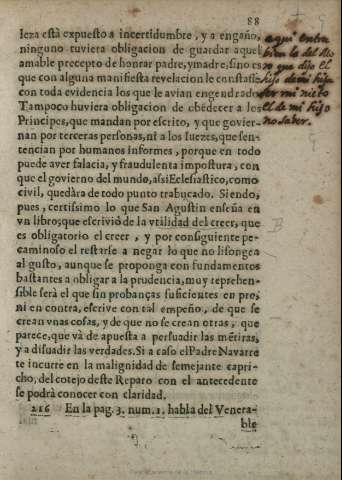 88
leza està expuesto a incertidumbre, y a engaño,
ninguno tuviera obligacion de guardar aquel
amable precepto de honrar padre, y madre, sino es
que con alguna manifiesta revelacion le constasse
con toda evidencia los que le avian engendrado
Tampoco huviera obligacion de obedecer a los
Principes, que mandan por escrito, y que govier-
nan por terceras personas, ni a los Iuezes, que sen-
tencian por humanos informes, porque en todo
puede aver falacia, y fraudulenta impostura, con
que el govierno del mundo, assi Eclesiastico, como
civil, quedàra de todo punto trabucado. Siendo,
pues, certissimo lo que San Agustin enseña en
vn libro, que escriviò de la vtilidad del creer, que
es obligatorio el creer, y por consiguiente pe-
caminoso el restarse a negar lo que no lisongea
al gusto, aunque se proponga con fundamentos
bastantes a obligar a la prudencia, muy reprehen-
sible serà el que sin probanças suficientes en pro,
ni en contra, escrive con tal empeño, de que se
crean vnas cosas, y de que no se crean otras, que
parece, que và de apuesta a persuadir las mẽtiras,
y a disuadir las verdades. Si a caso el Padre Navarro
te incurre en la malignidad de semejante capri-
cho, del cotejo deste Reparo con el antecedente
se podrà conocer con claridad.
216 En la pag. 3. num. 1. habla del Venera-
ble
aqui entra
bien lo del
que dijo el
hijo de mi hija
ser mi nieto
el de mi hijo
no saber.